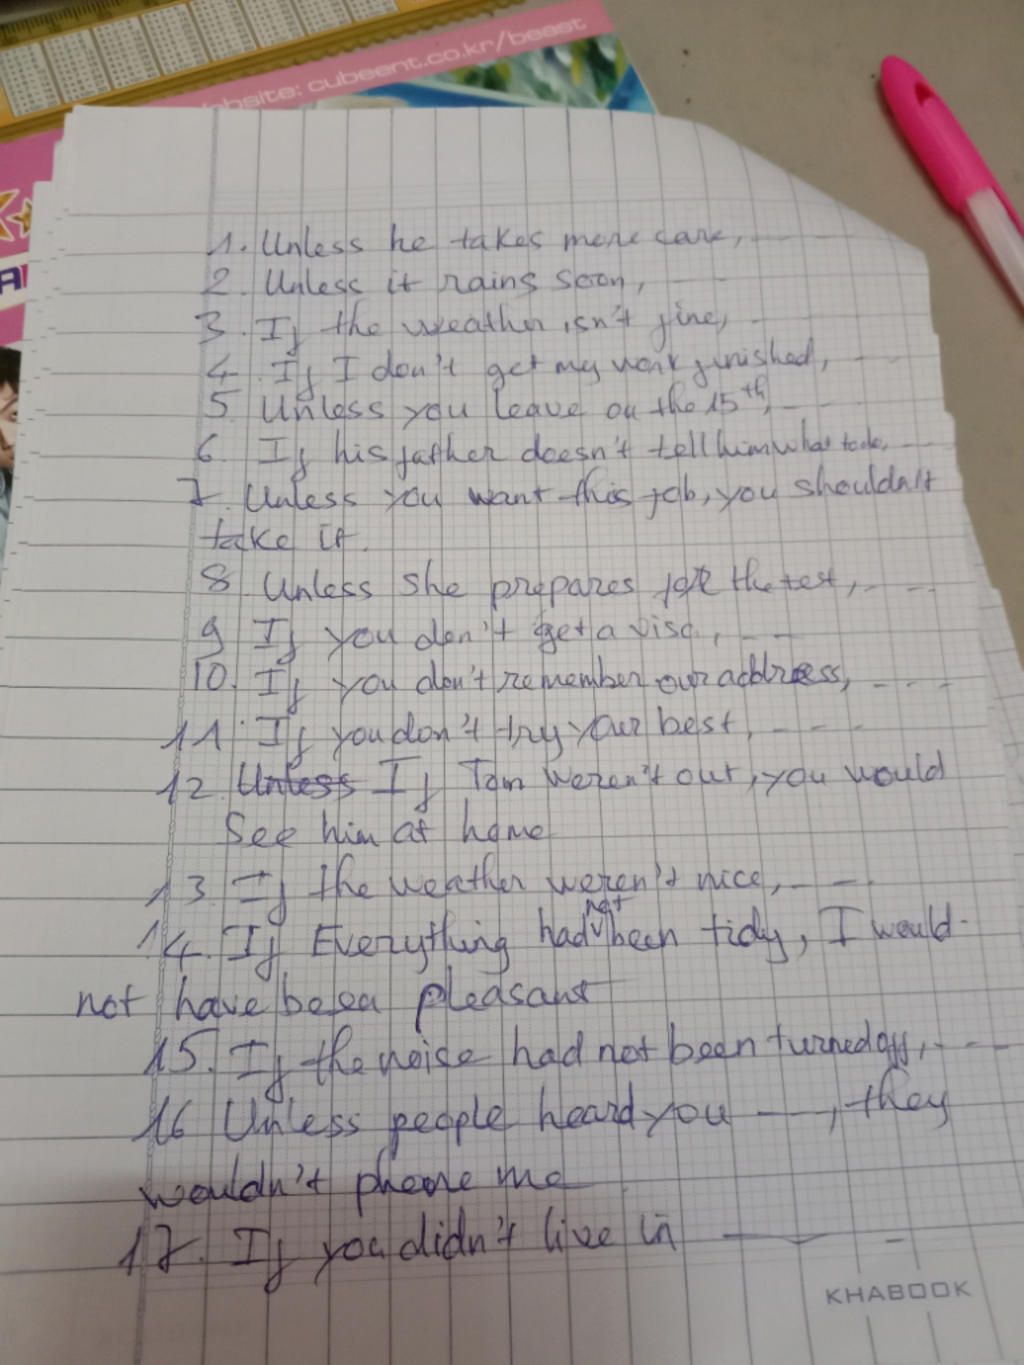 website: cubeent.co.kr/beast
1. Unless he takes more care, - - -
2. Unless it rains soon, - - -
3. If the weather isn't fine, -
4. If I don't get my work finished, - -
5. Unless you leave on the 15th, - - -
6. If his father doesn't tell him what to do, - -
7. Unless you want this job, you shouldn't
take it.
8 Unless she prepares for the test, - - -
9 If you don't get a visa, - - -
10. If you don't remember our address, - - - -
11. If you don't try your best, - - -
12. Unless If Tom weren't out, you would
see him at home
13. If the weather weren't nice, - -
14. If Everything had not been tidy, I would
not have been pleasant
15. If the noise had not been turned off, - - -
16 Unless people heard you —, they
wouldn't phone me
17. If you didn't live in — -
KHABOOK